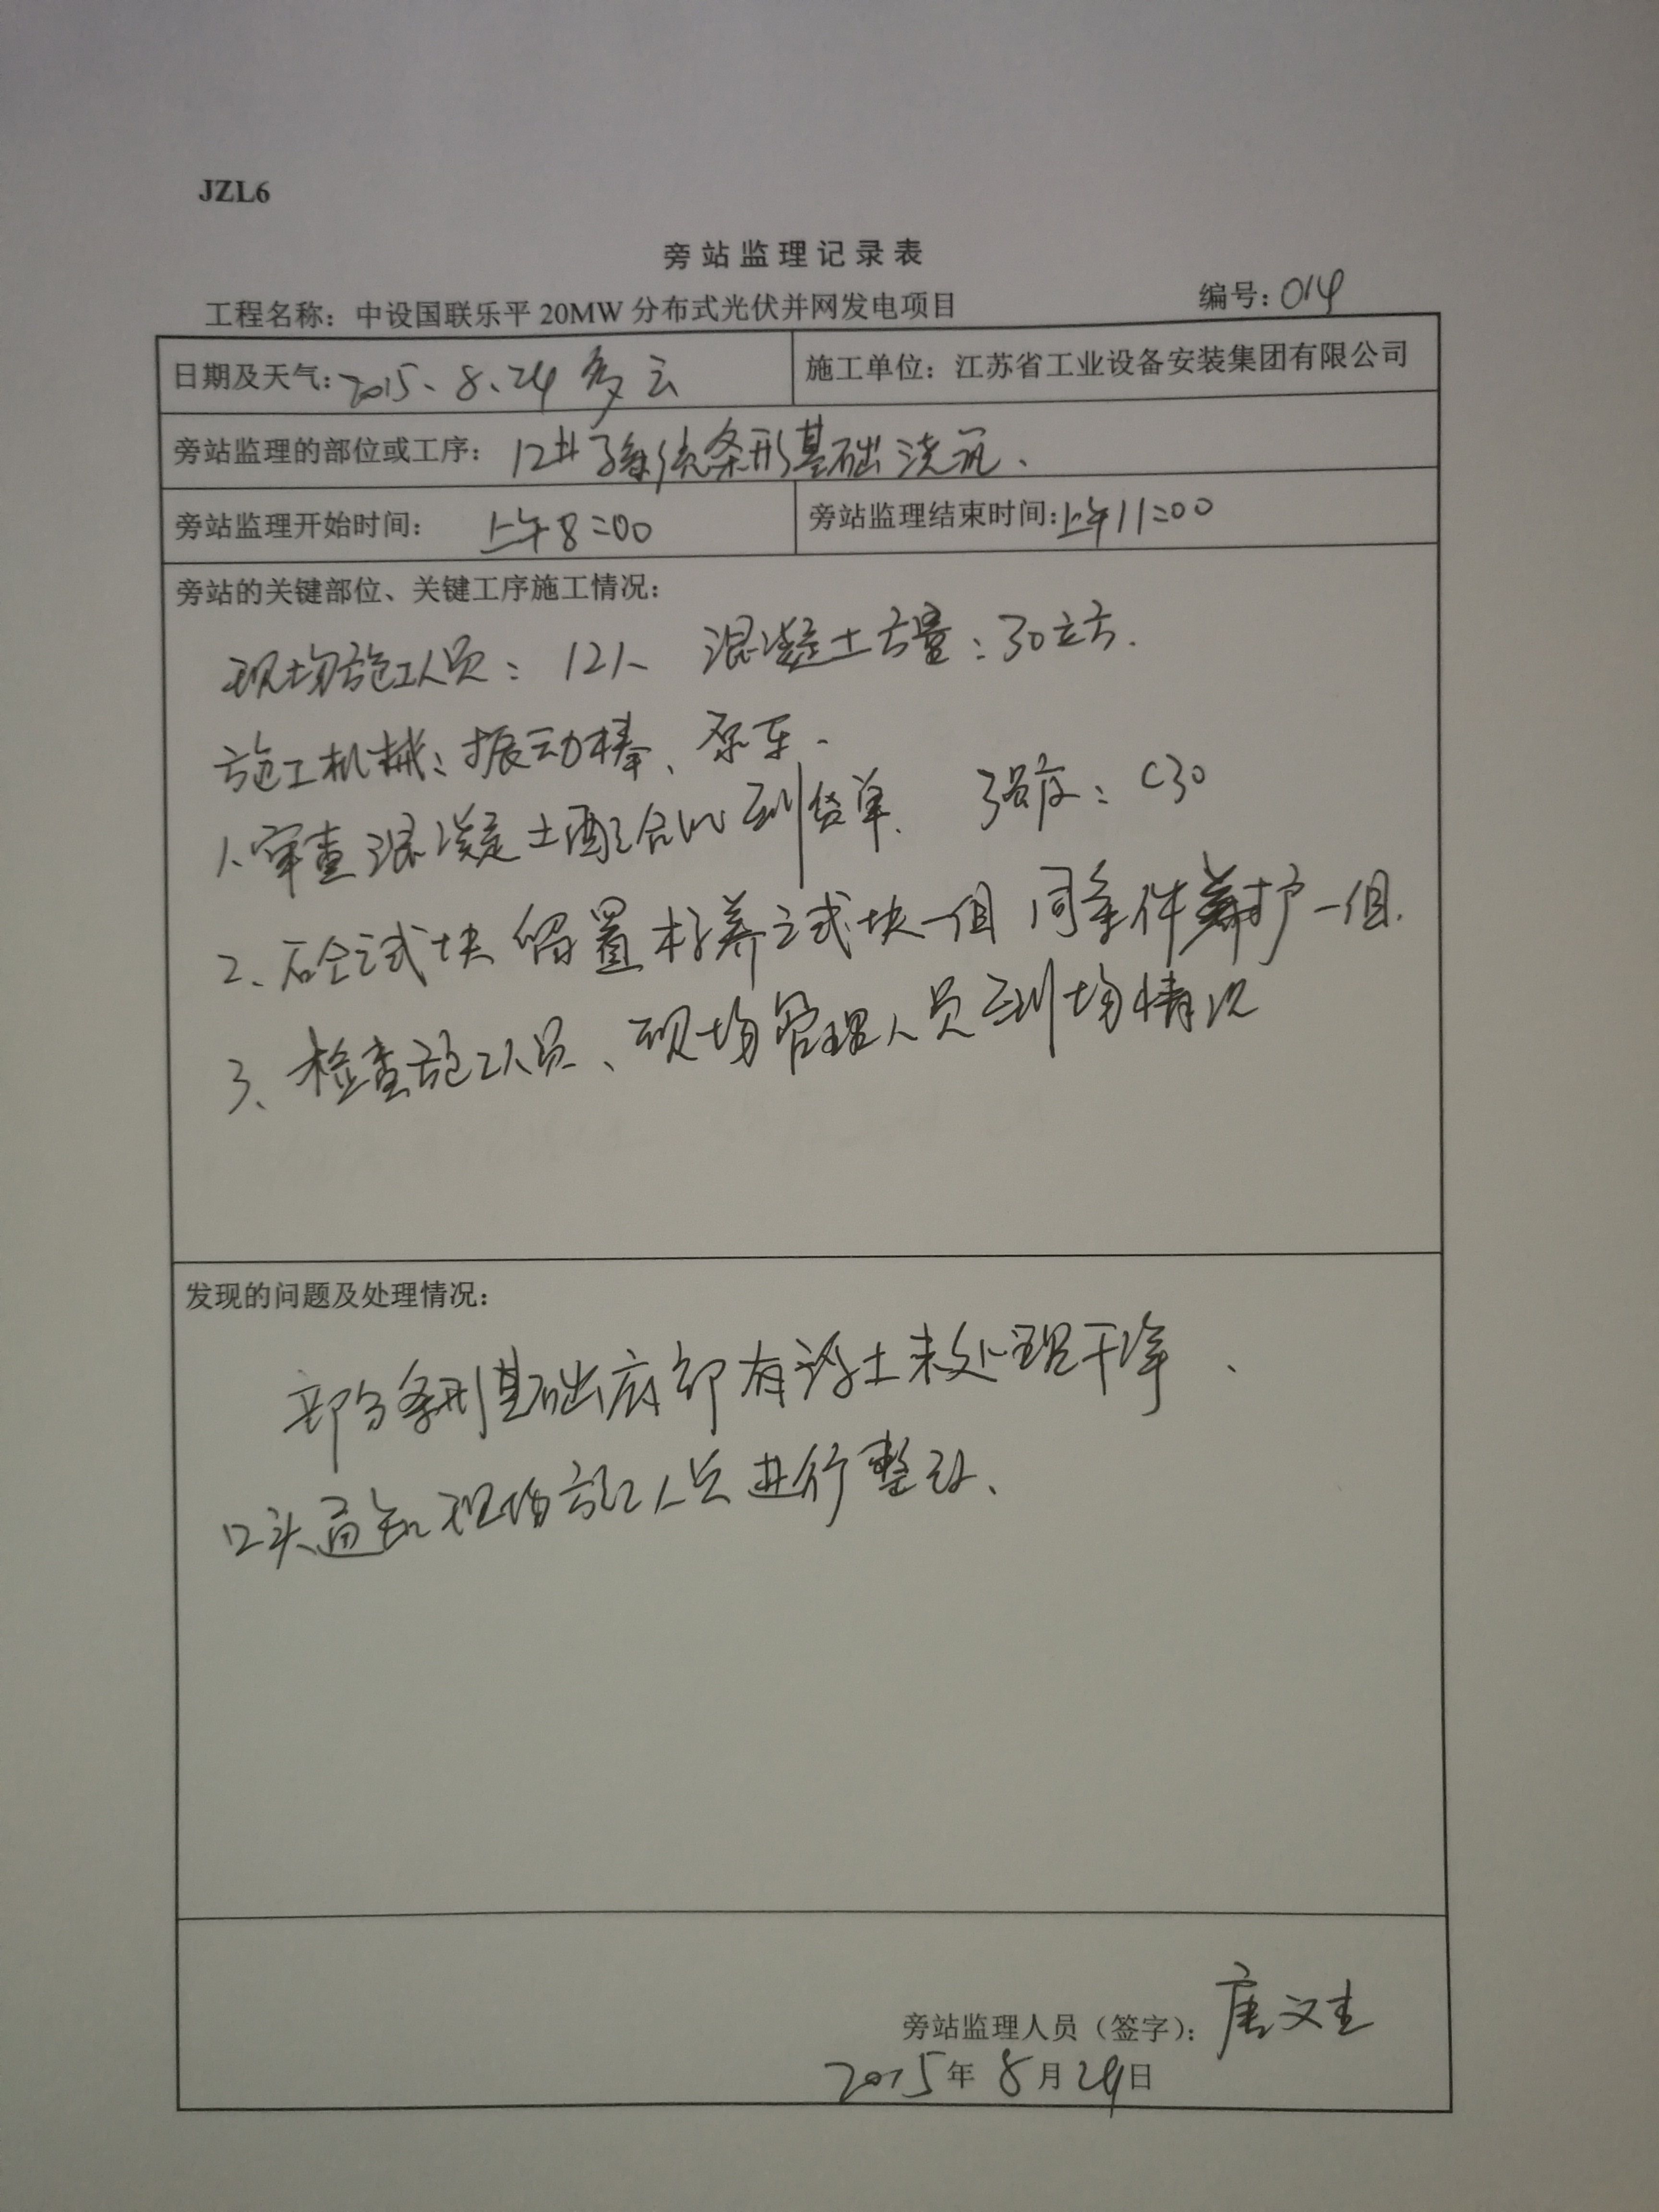 JZL6
旁站监理记录表
工程名称：中设国联乐平20MW分布式光伏并网发电项目 编号：014
日期及天气：2015、8、24 多云 施工单位：江苏省工业设备安装集团有限公司
旁站监理的部位或工序：12#子系统条形基础浇筑、
旁站监理开始时间： 上午8：00 旁站监理结束时间：上午11：00
旁站的关键部位、关键工序施工情况：
现场施工人员：12人 混凝土方量：30立方.
施工机械：振动棒、泵车.
1、审查混凝土配合比到货单、 强度：C30
2、砼试块留置标养试块一组 同条件养护一组.
3、检查施工人员、现场管理人员到场情况
发现的问题及处理情况：
部分条形基础底部有淤土未处理干净、
口头通知现场施工人员进行整改、
旁站监理人员（签字）：唐文生
2015年 8月24日